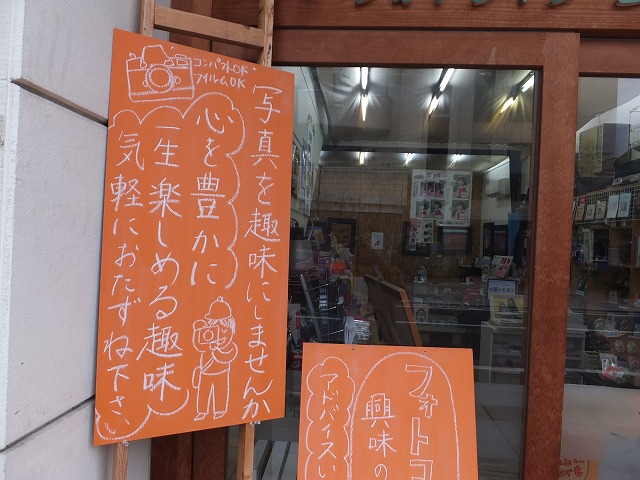 コンパクトOK
フイルムOK
写真を趣味にしませんか
心を豊かに
一生楽しめる趣味
気軽におたずね下さい
フォトコ
興味の
アドバイスい